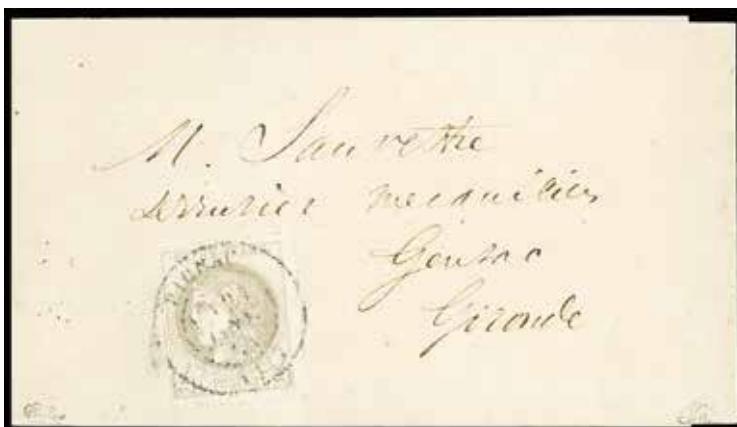 M. Sauvettre
serrurier mecanicien
Gensac
Gironde